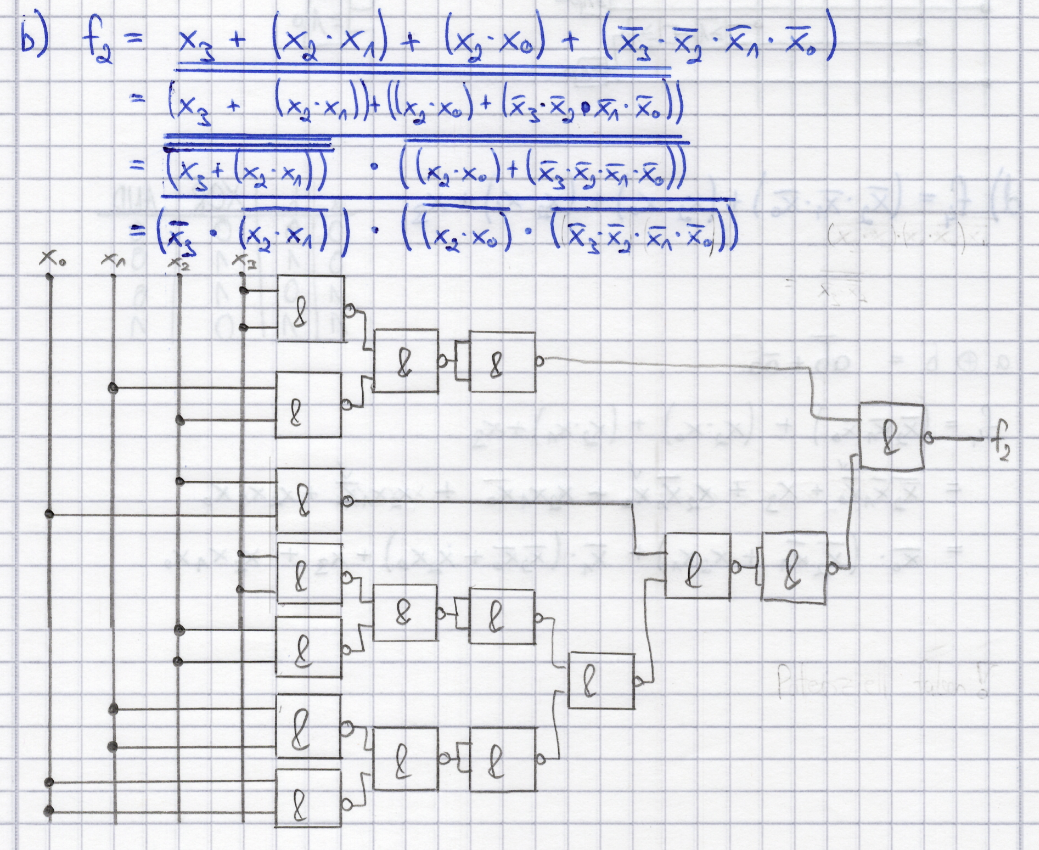 b) f₂ = x₃ + (x₂·x₁) + (x₂·x₀) + (x̅₃·x̅₂·x̅₁·x̅₀)
= (x₃ + (x₂·x₁))+((x₂·x₀)+(x̅₃·x̅₂·x̅₁·x̅₀))
= (x₃+(x₂·x₁)) · ((x₂·x₀)+(x̅₃·x̅₂·x̅₁·x̅₀))
= (x̅₃ · (x₂·x₁)) · ((x₂·x₀) · (x̅₃·x̅₂·x̅₁·x̅₀))
x₀ x₁ x₂ x₃
&
& &
&
& f₂
&
& &
&
& &
&
&
&
& &
&